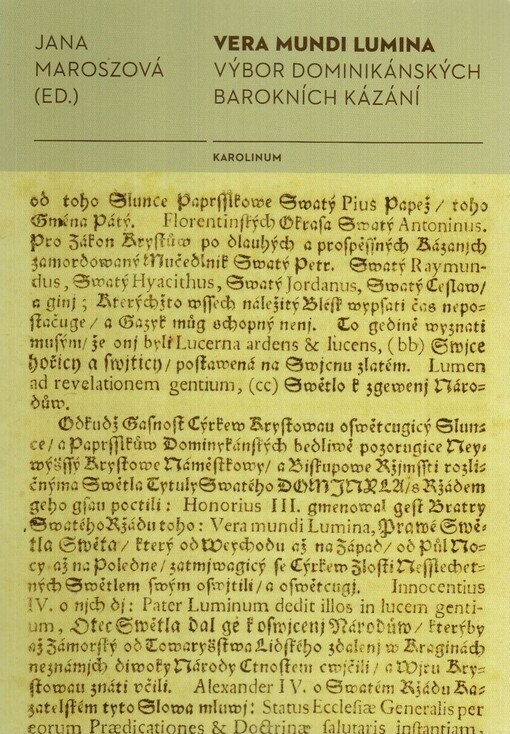 JANA
MAROSZOVÁ
(ED.)
VERA MUNDI LUMINA
VÝBOR DOMINIKÁNSKÝCH
BAROKNÍCH KÁZÁNÍ
KAROLINUM
od toho Slunce Paprsslkowe Swatý Pius Papež / toho
Gména Pátý. Florentinských Okrasa Swatý Antoninus.
Pro Zákon Krystůw po dlauhých a prospěssných Kázanjch
zamordowaný Mučedlnik Swatý Petr. Swatý Raymun-
dus, Swatý Hyacithus, Swatý Jordanus, Swatý Ceslaw/
a ginj ; Kterýchžto wssech náležitý Blesk wypsati čas nepo-
stačuge / a Gazyk můg schopný nenj. To gedině wyznati
musým/ že onj byli Lucerna ardens & lucens, (bb) Swjce
hořicy a swjticy/ postawená na Swjcnu zlatém. Lumen
ad revelationem gentium, (cc) Swětlo k zgewenj Náro-
důw.
Odkudž Gasnost Cýrkew Krystowau oswětcugicý Slun-
ce / a Paprsslkůw Dominykánských bedliwě pozorugice Ney-
wýšssý Krystowe Náměstkowy/ a Biskupowe Ržjmssti rozli-
čnýma Swětla Tytuly Swatého DOMINYKA/s Ržádem
geho gsau poctili : Honorius III. gmenowal gest Bratry
Swatého Ržádu toho : Vera mundi Lumina, Prawé Swě-
tla Swěta/ který od Weychodu až na Západ/ od Půl No-
cy až na Poledne/ zatmjwagicý se Cýrkew Zlostj Nesslechet-
ných Swětlem swým oswjtili/ a oswětcugj. Innocentius
IV. o njch dj : Pater Luminum dedit illos in lucem genti-
um, Otec Swětla dal gé k oswjcenj Národůw/ kterýby
až Zámorský od Towaryšstwa Lidského zdalenj w Kraginách
neznámých diwoký Národy Ctnostem cwjčili/ a Wjru Kry-
stowau znáti včili. Alexander IV. o Swatém Ržádu Ka-
zatelském tyto Slowa mluwj : Status Ecclesiæ Generalis per
eorum Prædicationes & Doctrinæ salutaris instantiam,